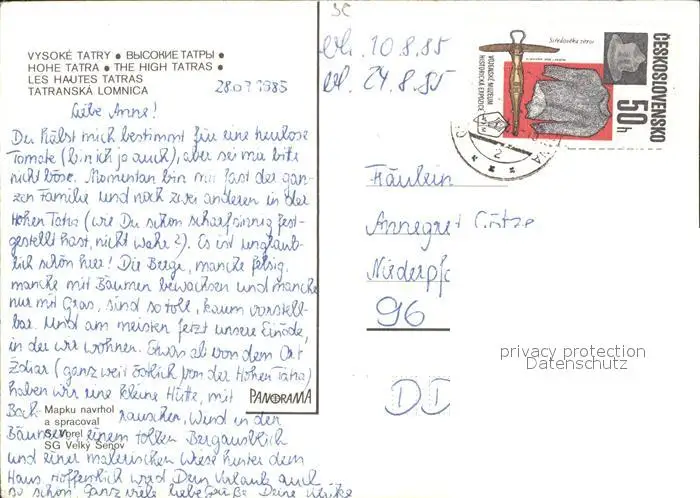 VYSOKÉ TATRY ● ВЫСОКИЕ ТАТРЫ ●
HOHE TATRA ● THE HIGH TATRAS ●
LES HAUTES TATRAS
TATRANSKÁ LOMNICA
28.07.1985
Liebe Anne!
Du hälst mich bestimmt für eine treulose
Tomate (bin ich ja auch), aber sei mir bitte
nicht böse. Momentan bin mit fast der gan-
zen Familie und noch zwei anderen in der
Hohen Tatra (wie Du schon scharfsinnig fest-
gestellt hast, nicht wahr?). Es ist unglaub-
lich schön hier! Die Berge, manche felsig,
manche mit Bäumen bewachsen und manche
nur mit Gras, sind so toll, kaum vorstell-
bar. Und am meisten fetzt unsere Einöde,
in der wir wohnen. Etwas ab von dem Ort
Ždiar (ganz weit östlich von der Hohen Tatra)
haben wir eine kleine Hütte, mit
Bach rauschen, Wind in den
Bäumen, einem tollen Bergausblick
und einer malerischen Wiese hinter dem
Haus. Hoffentlich wird Dein Urlaub auch
so schön. Ganz viele liebe Grüße Deine Ulrike
Mapku navrhol
a spracoval
S. Vorel
SG Velký Šenov
PANORAMA
10.8.85
24.8.85
Středověká zbroj
VOJENSKÉ MUZEUM
HISTORICKÁ EXPOZICE
ČESKOSLOVENSKO
50h
2
Fräulein
Annegret Götze
Niederpf
96
DD
privacy protection
Datenschutz